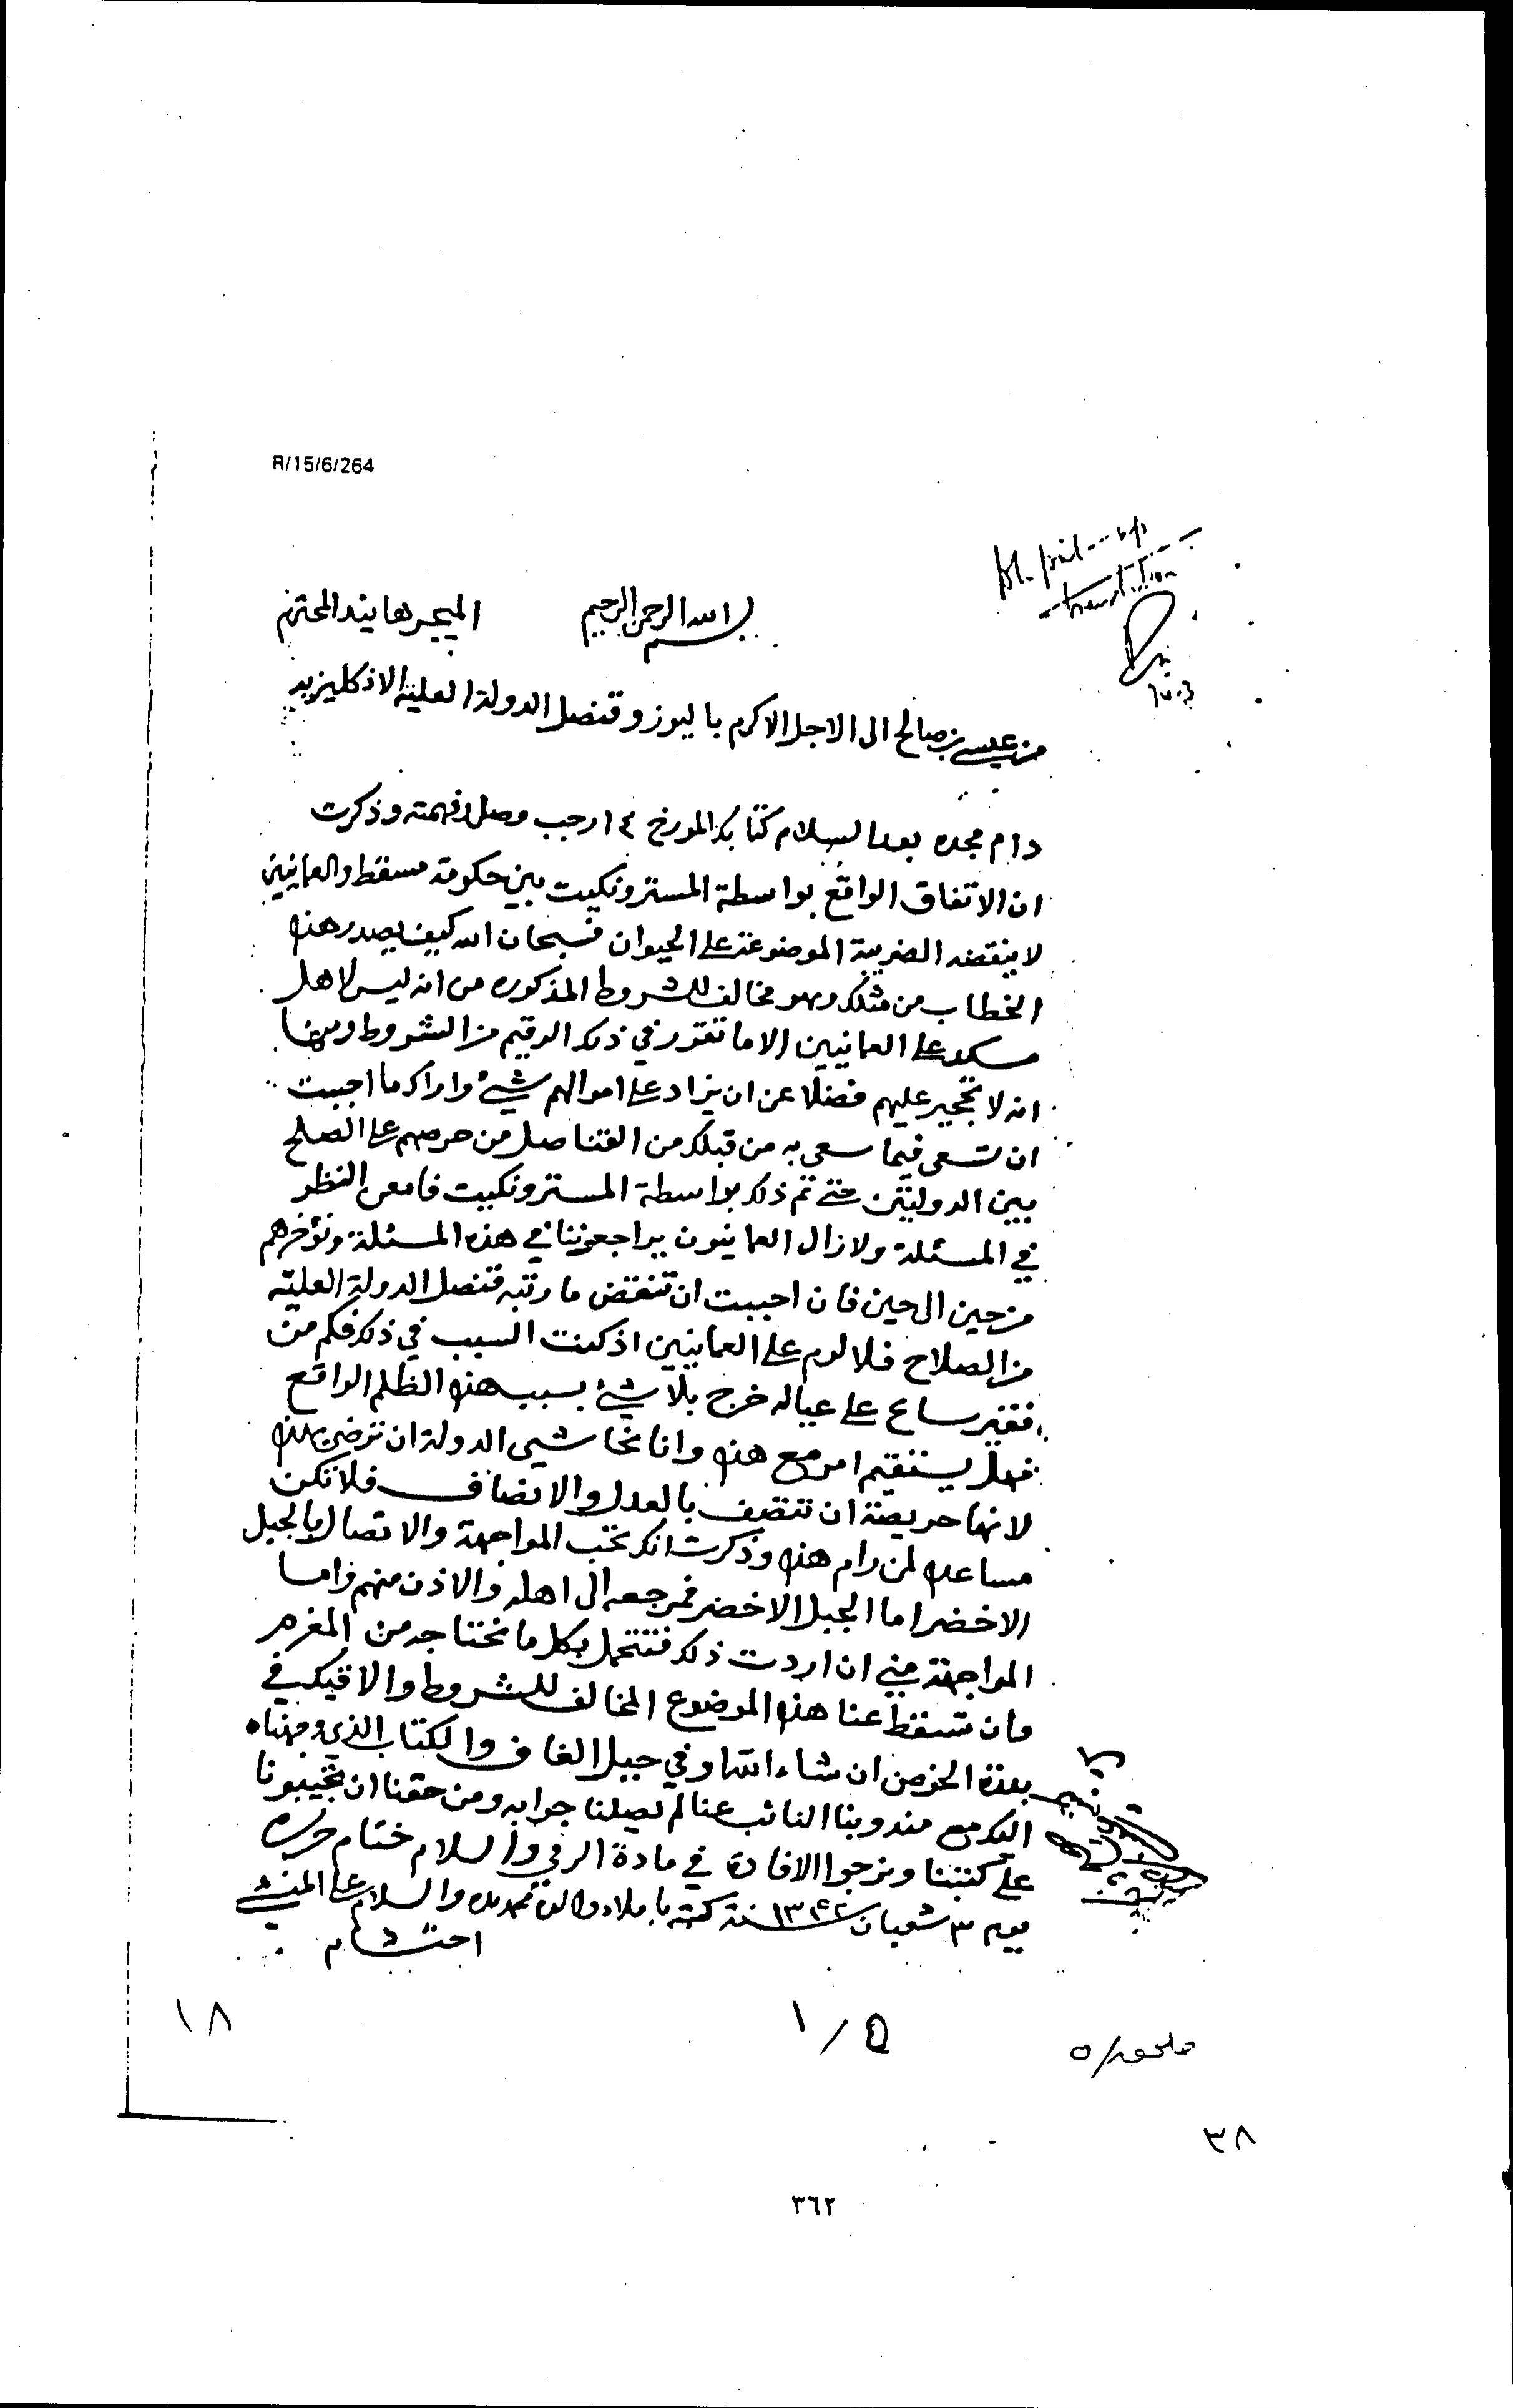 R/15/6/264
بسم الله الرحمن الرحيم
الميجر هايند المحترم
من عيسى بن صالح الى الاجل الاكرم باليوز وقنصل الدولة العلية الانكليزية
دام مجده بعد السلام كتابك المورخ ١٤ رجب وصل وفهمته وذكرت
ان الاتفاق الواقع بواسطة المستر ونكيت بين حكومة مسقط والعمانيين
لا ينقضه الضريبة الموضوعة على الحيوان فسبحان الله كيف يصدر هذه
الخطاب من مثلك وهو مخالف للشروط المذكوره من انه ليس لاهل
مسكد على العمانيين الا ما تقرر في ذلك الرقيم من الشروط ومنها
انه لا تحجير عليهم فضلا عن ان يزاد على اموالهم شيء واراك ما احببت
ان تسعى فيما سعى به من قبلك من القناصل من حرصهم على الصلح
بين الدولتين حتى تم ذلك بواسطة المستر ونكيت فامعن النظر
في المسئلة ولا زال العمانيون يراجعوننا في هذه المسئلة ونؤخرهم
من حين الى حين فان احببت ان تنقض ما رتبه قنصل الدولة العلية
من الصلاح فلا لوم على العمانيين اذ كنت السبب في ذلك فكم من
فقير ساع على عياله خرج بلا شيء بسبب هذه الظلم الواقع
فهل يستقيم امر مع هذه وانا نحاشي الدولة ان ترضى بهذه
لانها حريصة ان تتصف بالعدل والانصاف فلا تكن
مساعد لمن رام هذه وذكرت انك تحب المواجهة والاتصال بالجبل
الاخضر اما الجبل الاخضر فمرجعه الى اهله والاذن منهم واما
المواجهة مني ان اردت ذلك فتتحمل بكل ما نحتاجه من المغرم
وان تسقط عنا هذه الموضوع المخالف للشروط والاقيك في
بلدة الخوض ان شاء الله او في جبل الغاف والكتاب الذي وجهناه
اليك مع مندوبنا النائب عنا لم يصلنا جوابه ومن حقنا ان تجيبونا
على كتبنا ونرجوا الافادة في مادة الرفي والسلام ختام حرره
يوم ٣ شعبان سنة ١٣٤٢ كتبه باملاء والده محمد والسلام على المنشي
احتشام
١٨
١/٥
ملحق/٥
٣٨
٣٦٢